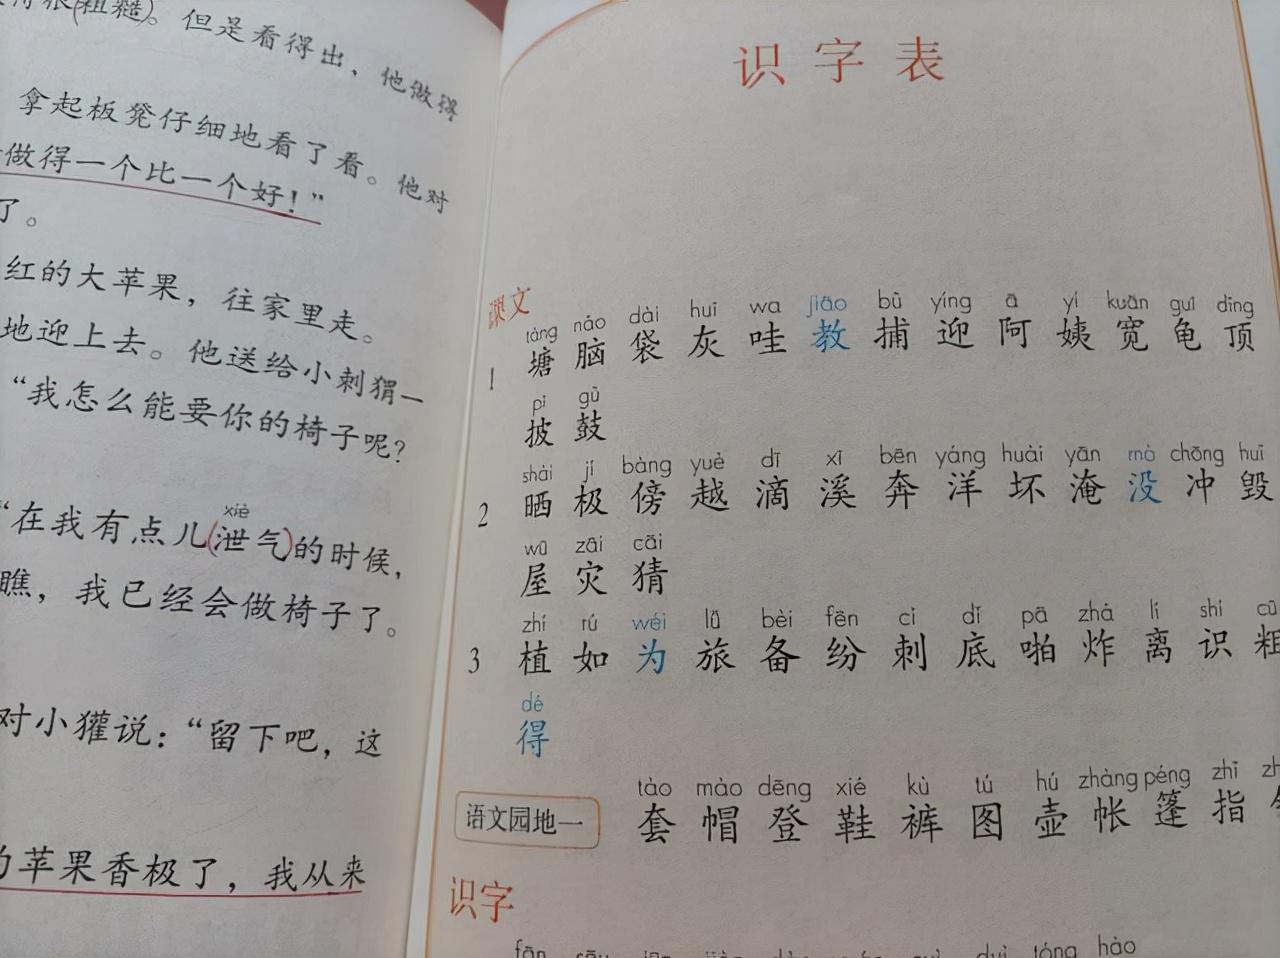 很(粗糙)。但是看得出、他做得
拿起板凳仔细地看了看。他对
做得一个比一个好！”
了。
红的大苹果，往家里走。
地迎上去。他送给小刺猬一
“我怎么能要你的椅子呢？
xiè
“在我有点儿(泄气)的时候，
瞧，我已经会做椅子了。
对小獾说：“留下吧，这
的苹果香极了，我从来
识字表
课文
táng nǎo dài huī wa jiāo bǔ yíng ā yí kuān guī dǐng
1 塘 脑 袋 灰 哇 教 捕 迎 阿 姨 宽 龟 顶
pī gǔ
披 鼓
shài jí bàng yuè dī xī bēn yáng huài yān mò chōng huǐ
2 晒 极 傍 越 滴 溪 奔 洋 坏 淹 没 冲 毁
wū zāi cāi
屋 灾 猜
zhí rú wéi lǚ bèi fēn cì dǐ pā zhà lí shi cū
3 植 如 为 旅 备 纷 刺 底 啪 炸 离 识 粗
dé
得
tào mào dēng xié kù tú hú zhàng péng zhǐ
语文园地一 套 帽 登 鞋 裤 图 壶 帐 篷 指
识字